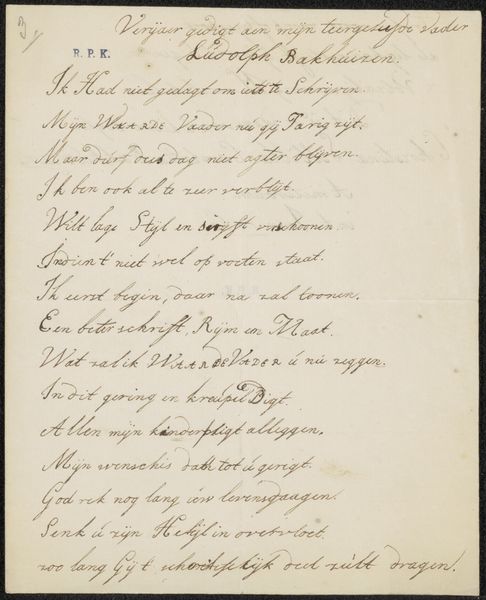 Verjaer gedigt aen mijn teergeliefde vader
R.P.K.
Ludolph Bakhuizen.
Ik Had niet gedagt om iets te Schrijven.
Mijn WAARDE Vaader nu gij Jarig zijt.
Maar durf deis dag niet agter blijven.
Ik ben ook al te zeer verblijt.
Wilt lage Stijl en verschoonen.
Indien t' niet wel op voeten staat.
Ik eerst begin, daar na zal toonen.
Een beter schrift, Rijm en Maat.
Wat zal ik WAARDE VADER ú nu zeggen.
In dit gering en kreupel Digt.
Allen mijn kinderpligt afleggen.
Mijn wensch is dath tot ú gerigt.
God rek nog lang úw levensdaagen.
Senk ú zijn Heijl in overvloet.
zoo lang Gij t deel zúlt dragen.